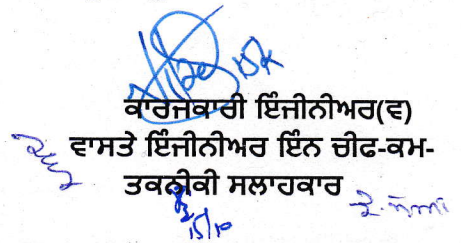 ਕਾਰਜਕਾਰੀ ਇੰਜੀਨੀਅਰ(ਵ)
ਵਾਸਤੇ ਇੰਜੀਨੀਅਰ ਇਨ ਚੀਫ-ਕਮ-
ਤਕਨੀਕੀ ਸਲਾਹਕਾਰ
15/10